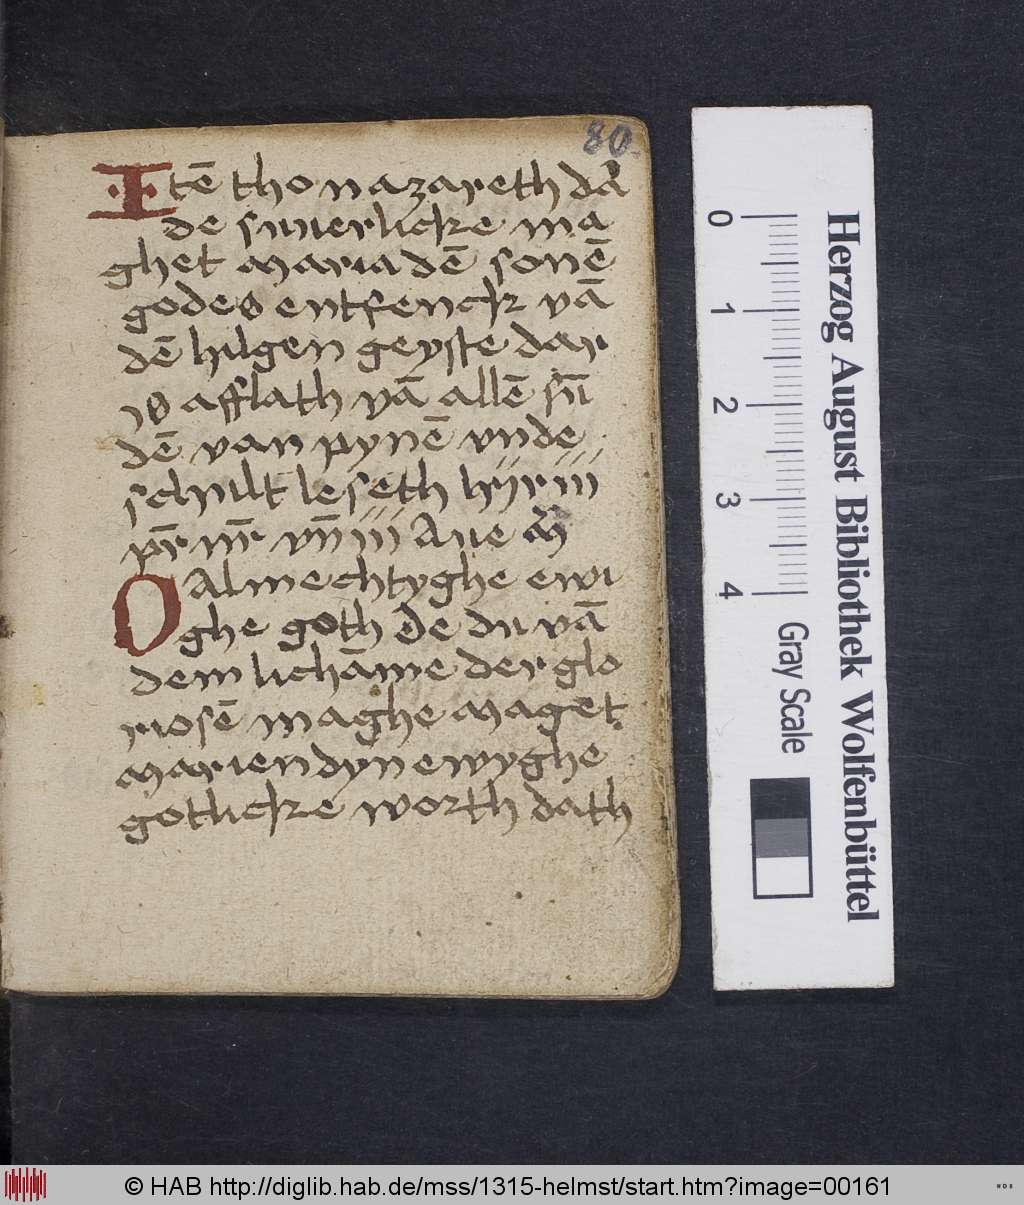 80.
Itē tho nazareth dar
de suuerlicke ma
ghet maria dē sonē
godes entfenck vā
dē hilgen geyste dar
is afflath vā allē sū
dē van pynē vnde
schult leseth hyr iii
pr̄ nr̄ vn̄ iii Aue ma
O Almechtyghe ewi
ghe goth De du vā
dem lichāme der glo
riosē maghe maget
marien dyn ewyghe
gotlicke worth dath
0 1 2 3 4
Gray Scale
Herzog August Bibliothek Wolfenbüttel
© HAB http://diglib.hab.de/mss/1315-helmst/start.htm?image=00161